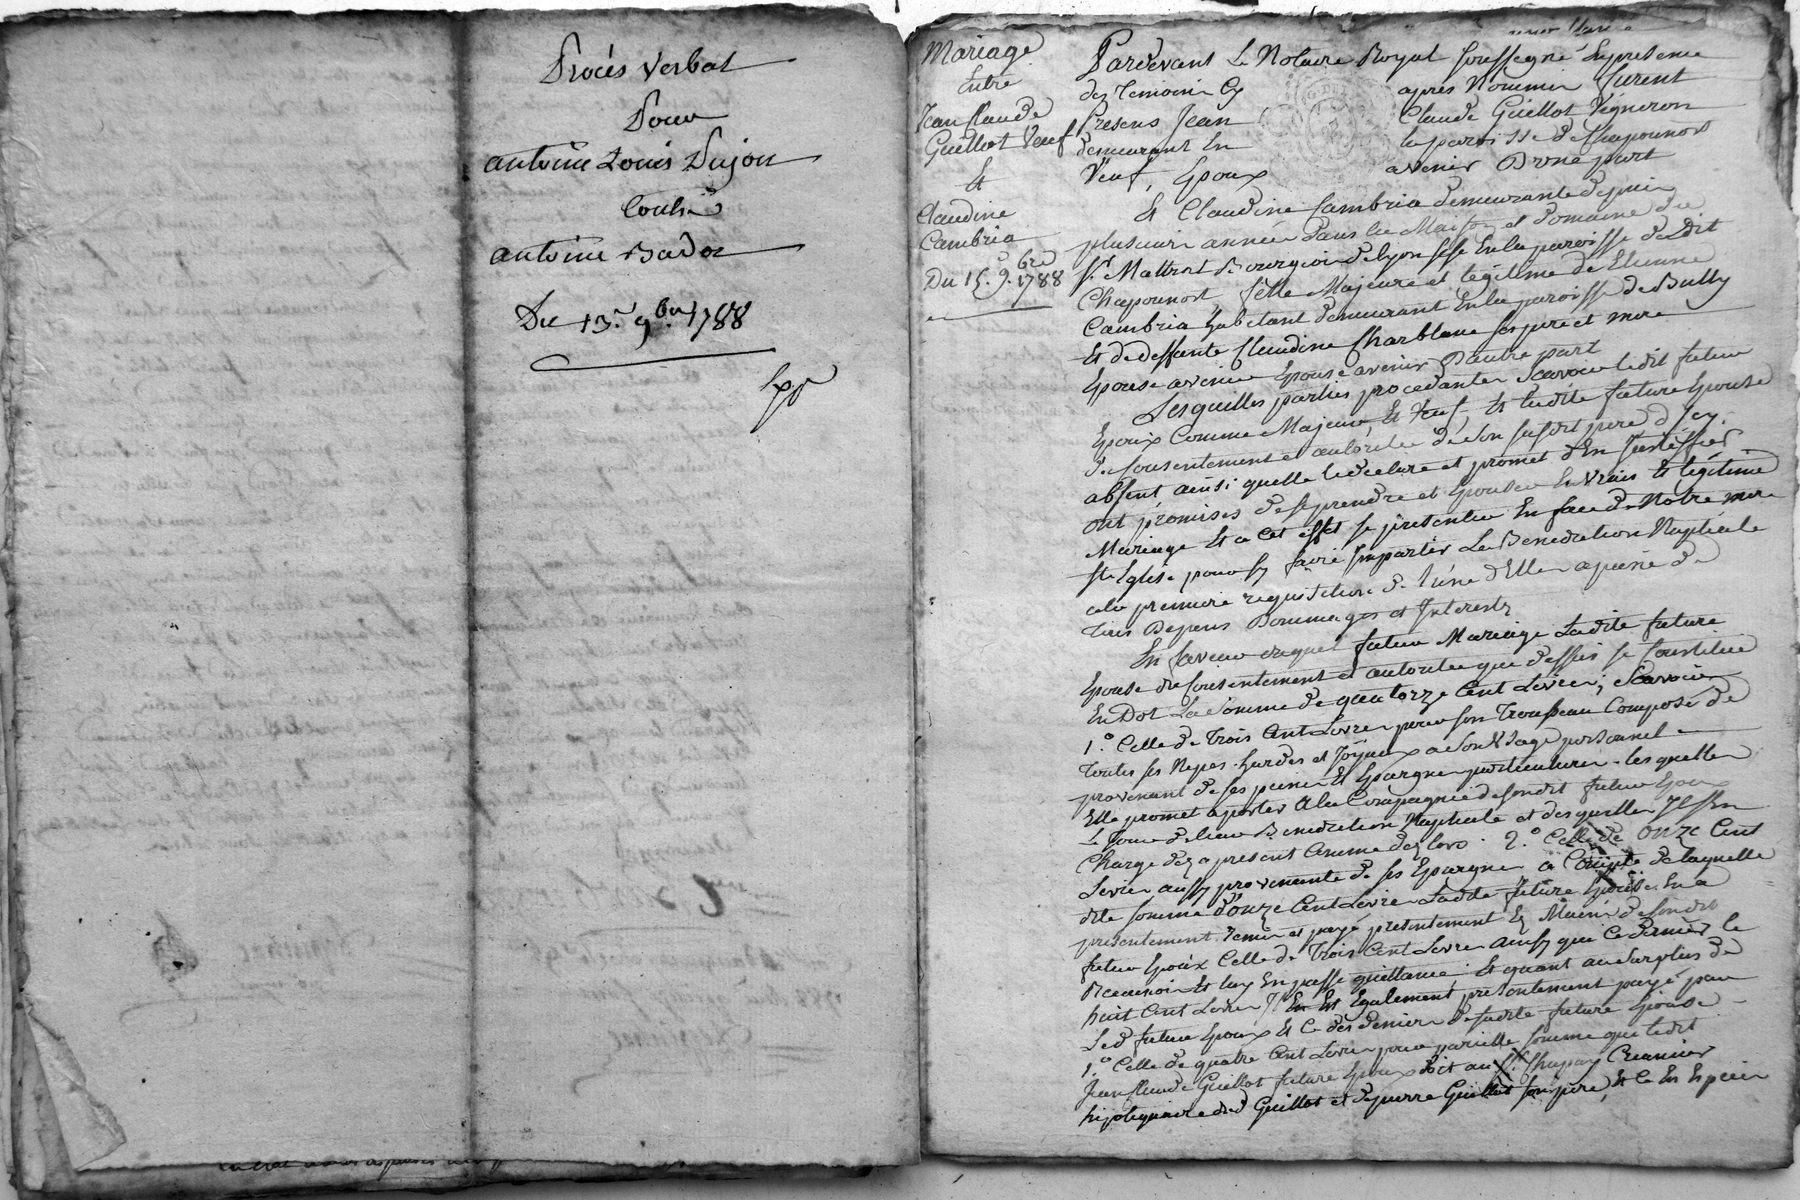 Procés verbal
Pour
antoine Louis Dujon
Contre
antoine Badoz
Du 13e 9bre 1788
Exp
Mariage
Entre
Jean Claude
Guillot Veuf
Et
Claudine
Cambria
Du 15. 9bre 1788
Pardevant Le Notaire Royal soussigné En presence
des Temoins Cy apres Nommés furent
Presens Jean Claude Guillot Vigneron
demeurant En la paroisse de Chaponost
Veuf, Epoux avenir D'une part
Et Claudine Cambria demeurante depuis
plusieurs années dans la Maison et domaine du
Sr. Mattrot Bourgeois de lyon sise En la paroisse dudit
Chaponost, fille Majeure et legitime de Etienne
Cambria habitant demeurant En la paroisse de Bully
Et de deffunte Claudine Charblanc ses pere et mere
Epouse avenir D'autre part
Lesquelles parties procedantes Scavoir ledit futur
Epoux Comme Majeur, Et Veuf, Et ladite future Epouse
du Consentement et autorité de son susdit pere d'Icy
absent ainsi quelle le declare et promet d'En justiffier
ont promises de se prendre et Epouser En vrais Et légitime
Mariage Et a cet effet se presenter En face de Notre mere
Ste Eglise pour sy faire Impartir La Benediction Nuptiale
ala premiere requisition de l'une d'Elles a peine de
tous Depens Dommages et Interests
En faveur duquel futur Mariage Ladite future
Epouse du Consentement et autorité que dessus se Constitue
En Dot La Somme de quatorze Cent Livres; Scavoir
1.° Celle de Trois Cent Livres pour son Trousseau Composé de
toutes ses Nipes hardes et Joyaux a son Usage personnel
provenant de ses peines Et Epargnes particulieres lesquelles
Elle promet aporter a la Compagnie de sondit futur Epoux
Le Jour de leur Benediction Nuptiale et desquelles Il s'En
Charge dez a present Comme dez lors. 2.° Celle de Onze Cent
Livres aussy provenante de ses Epargnes a Compte de laquelle
dite somme d'onze Cent Livres Ladite future Epouse En a
presentement remis et payé presentement Es Mains de sondit
futur Epoux Celle de Trois Cent Livres ainsy que ce dernier le
Reconnoit Et luy En passe quittance. Et quant au Surplus de
huit Cent Livres Il En Est Egalement presentement payé par
Led. futur Epoux Et Ce des deniers de ladite future Epouse
1.° Celle de quatre Cent Livres pour pareille somme que ledit
Jean Claude Guillot futur Epoux doit au Sr. Chapuy Creancier
hipotequaire dud Guillot et de pierre Guillot son pere, Et Ce En Especes